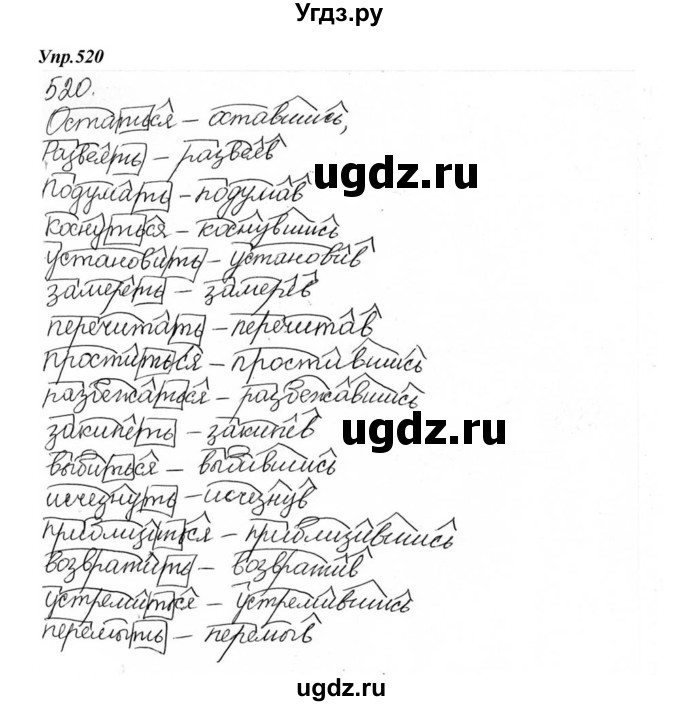 Угдз.ру
Упр.520
520.
Остаться – оставшись,
Развеять – развеев
ugdz.ru
подумать – подумав
коснуться – коснувшись
установить – установив
замереть – замерев
перечитать – перечитав
проститься – простившись
разбежаться – разбежавшись
закипеть – закипев
ugdz.ru
выбиться – выбившись
исчезнуть – исчезнув
приблизиться – приблизившись
возвратить – возвратив
устремиться – устремившись
перемыть – перемыв
ugdz.ru